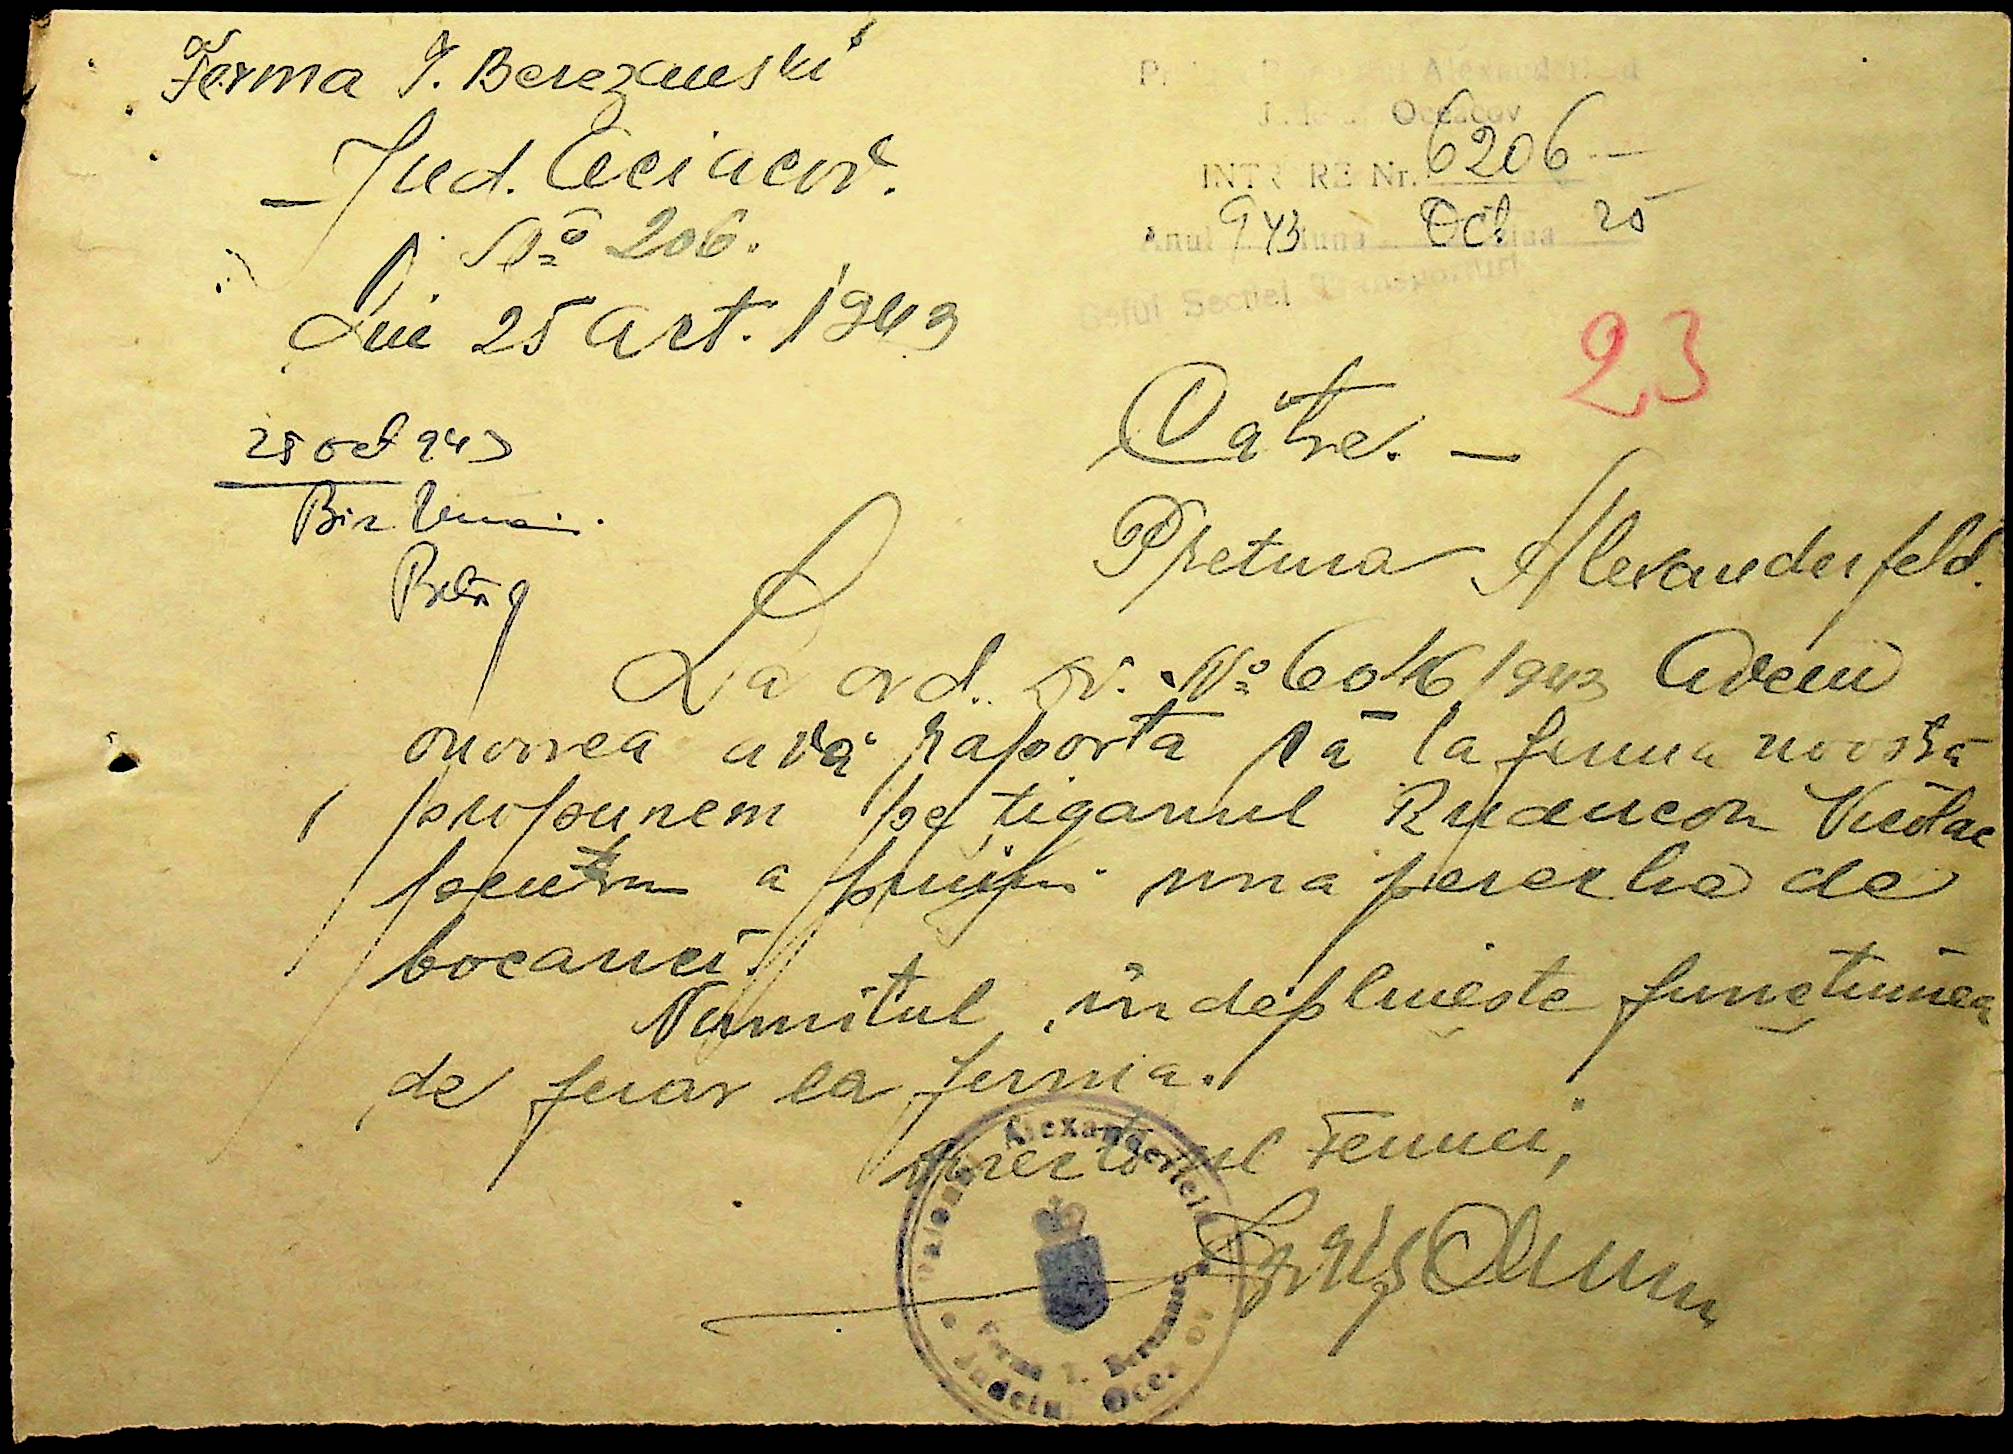 Ferma I. Berezanski
Jud. Oceacov.
No 206.
Din 25 Oct. 1943
Alexanderfeld
Judeţul Oceacov
INTRARE Nr. 6206
Anul 943 luna Oct. ziua 25
Şeful Secţiei Transporturi
23
25 oct 943
Către. —
Pretura Alexanderfeld.
La ord. Dv. No 6016/943 Avem
onoarea a vă raporta că la ferma noastră
propunem pe ţiganul Nicolae
pentru a primi una pereche de
bocanci.
Numitul îndeplineşte funcţiunea
de ferar la ferma.
Directorul Fermei,
Alexanderfeld
Ferma I. Berezanski
Judeţul Oceacov